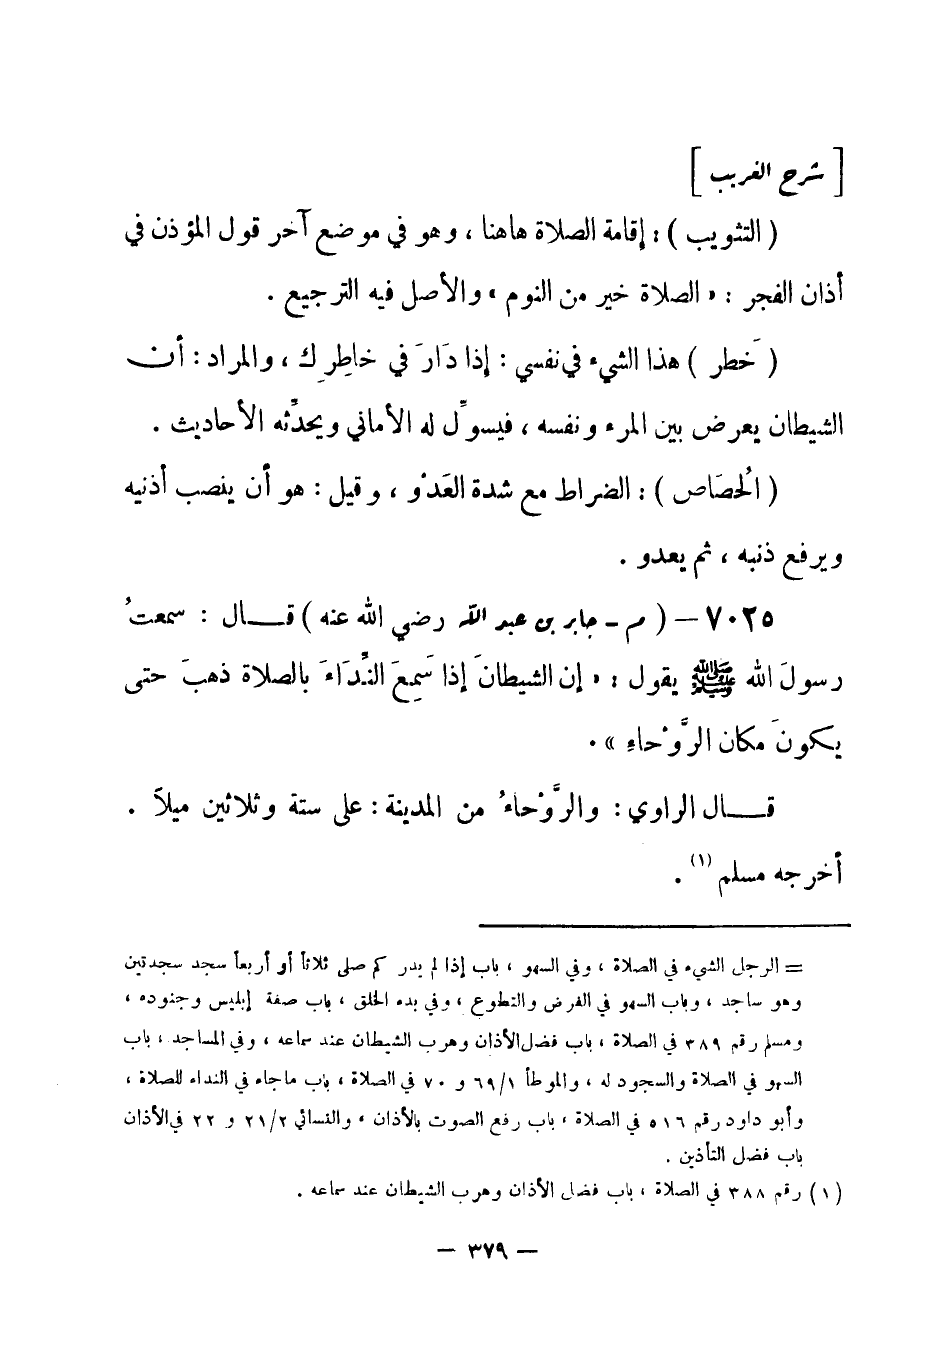 [ شرح الغريب ]
( التثويب ) : إقامة الصلاة هاهنا ، وهو في موضع آخر قول المؤذن في
أذان الفجر : « الصلاة خير من النوم » والأصل فيه الترجيع .
( خَطر ) هذا الشيء في نفسي : إذا دَارَ في خاطِرِك ، والمراد : أن
الشيطان يعرض بين المرء ونفسه ، فيسوِّل له الأماني ويحدِّثه الأحاديث .
( الُحصَاص ) : الضراط مع شدة العَدْو ، وقيل : هو أن ينصب أذنيه
ويرفع ذنبه ، ثم يعدو .
٧٠٢٥ – ( م - جابر بن عبد الله رضي الله عنه ) قــال : سمعتُ
رسولَ الله ﷺ يقول : « إن الشيطانَ إذا سَمِعَ النِّدَاءَ بالصلاة ذهبَ حتى
يكونَ مكان الرَّوْحاءِ » .
قــال الراوي : والرَّوْحاءُ من المدينة : على ستة وثلاثين ميلاً .
أخرجه مسلم (١) .
= الرجل الشيء في الصلاة ، وفي السهو ، باب إذا لم يدر كم صلى ثلاثاً أو أربعاً سجد سجدتين
وهو ساجد ، وباب السهو في الفرض والتطوع ، وفي بدء الخلق ، باب صفة إبليس وجنوده ،
ومسلم رقم ٣٨٩ في الصلاة ، باب فضل الأذان وهرب الشيطان عند سماعه ، وفي المساجد ، باب
السهو في الصلاة والسجود له ، والموطأ ٦٩/١ و ٧٠ في الصلاة ، باب ماجاء في النداء للصلاة ،
وأبو داود رقم ٥١٦ في الصلاة ، باب رفع الصوت بالأذان ، والنسائي ٢١/٢ و ٢٢ في الأذان
باب فضل التأذين .
(١) رقم ٣٨٨ في الصلاة ، باب فضل الأذان وهرب الشيطان عند سماعه .
– ٣٧٩ –